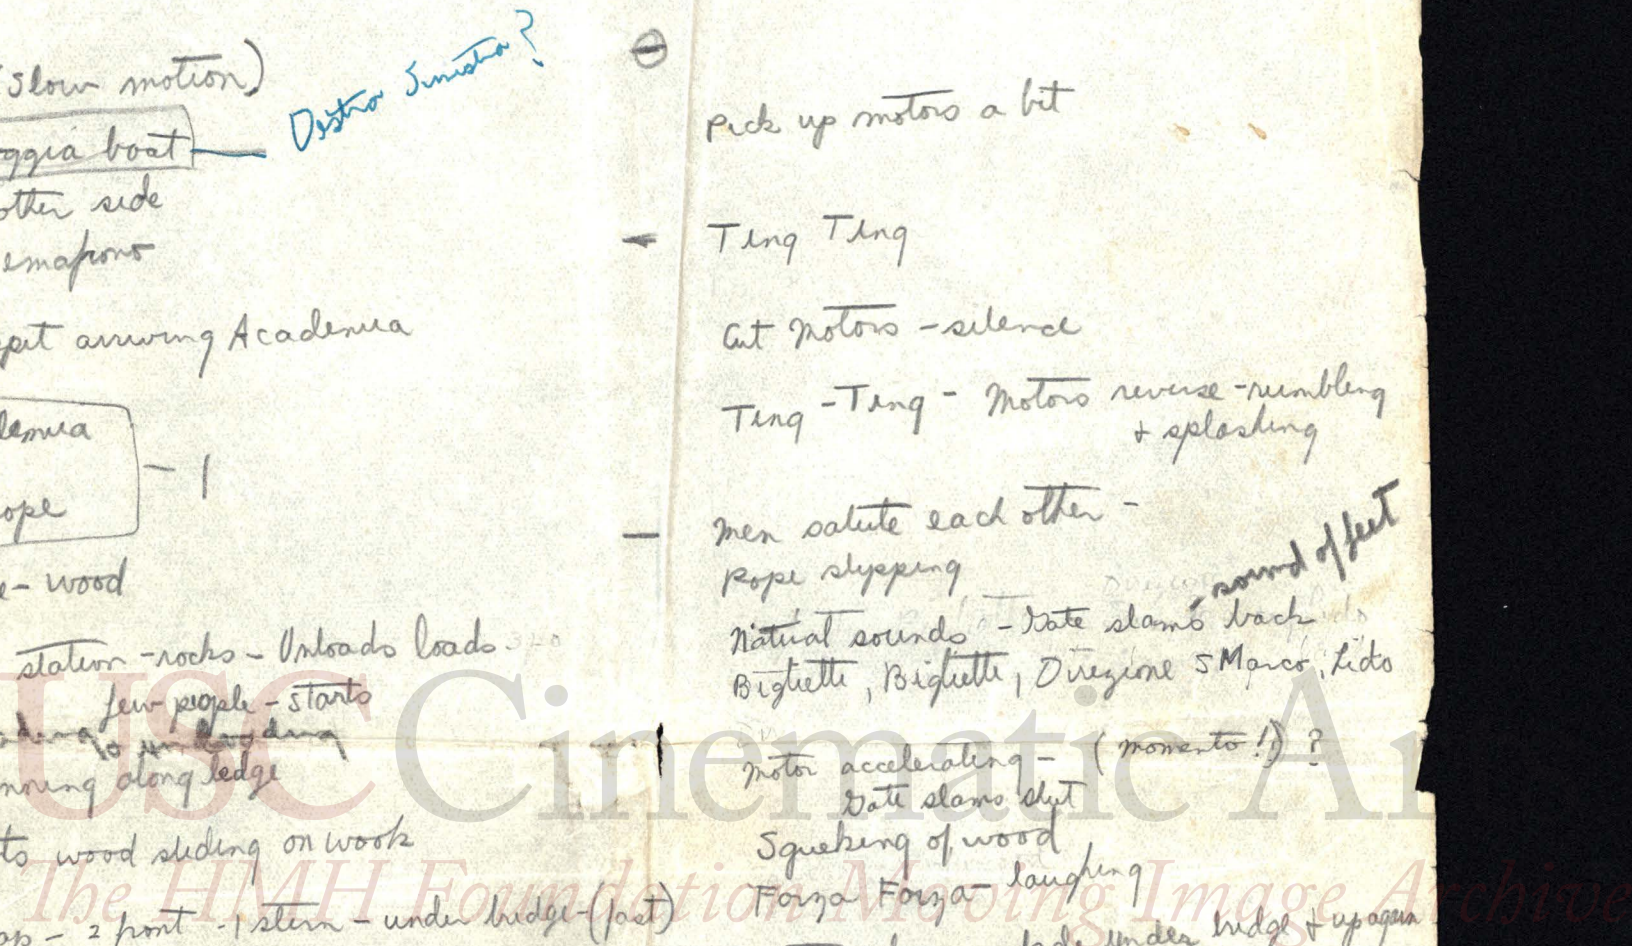 (Slow motion)
Destra Sinistra?
boat
other side
arriving Academia
ope
wood
station - rocks - Unloads loads
few people - starts
along ledge
wood sliding on wook
2 front - 1 stern - under bridge - (fast)
Pick up motors a bit
Ting Ting
Cut Motors - silence
Ting - Ting - Motors reverse - rumbling
+ splashing
Men salute each other -
Rope slypping
- sound of feet
Natural sounds - Gate slams back
Biglietti, Biglietti, Direzione S Marco, Lido
Motor accelerating - (momento!!) ?
Gate slams shut
Squeking of wood
Forza Forza - laughing
under bridge + up again
USC Cinematic Ar
The HMH Foundation Moving Image Archive